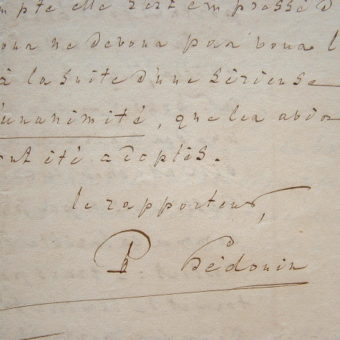 mpte elle s'est empressé d
vous ne devons pas vous l
à la suite d'une sérieuse
l'unanimité, que les abio
ont été adoptés.
le rapporteur,
P. Hédouin